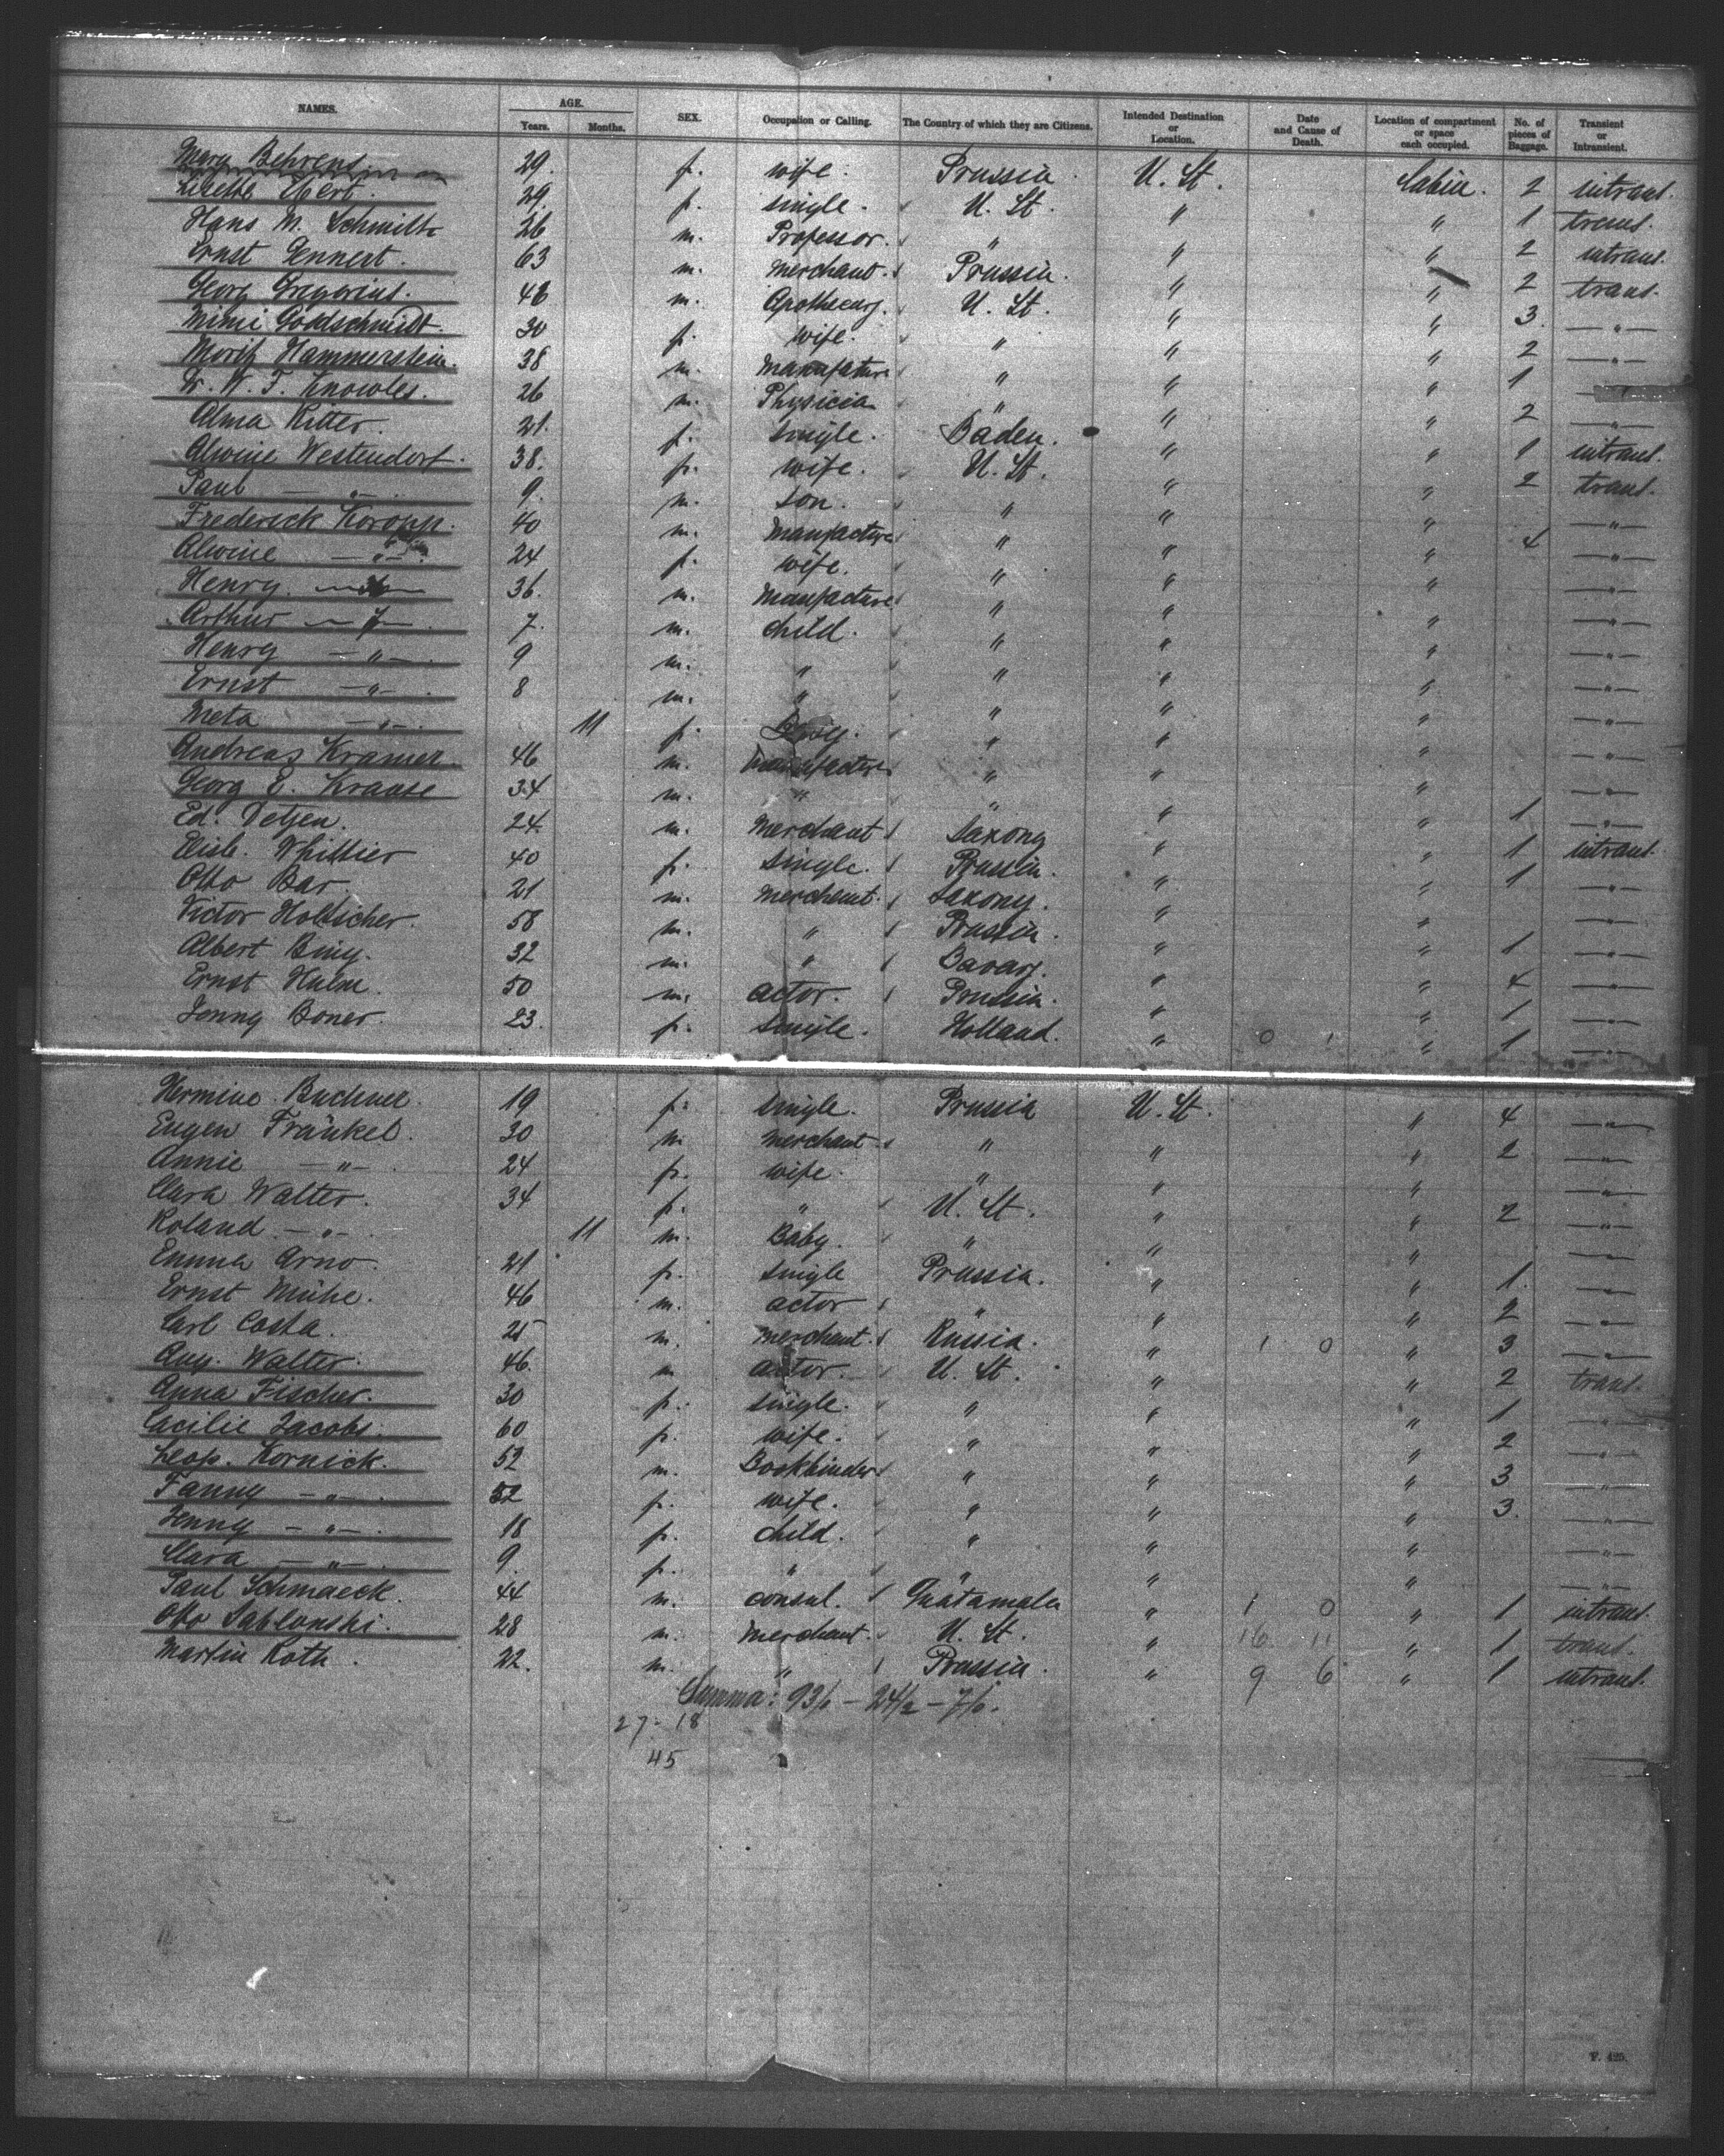 NAMES. AGE. Years. Months. SEX. Occupation or Calling. The Country of which they are Citizens. Intended Destination or Location. Date and Cause of Death. Location of compartment or space each occupied. No. of pieces of Baggage. Transient or Intransient.
Mary Behrens. 29. f. wife. Prussia. U. St. Cabin. 2 intrans.
Lisette Ebert. 29. f. single. U. St. " " 1 trans.
Hans M. Schmilt 26 m. Professor. " " " 2 intrans.
Ernst Gennert. 63 m. Merchant. Prussia. " " 2 trans.
Georg Gregorius. 46 m. Apothecary. U. St. " " 3. —"—
Mimi Goldschmidt. 30 f. wife. " " " 2 —"—
Moritz Hammerstein. 38 m. Manufacture " " " 1 —"—
Dr. W. F. Knowles. 26 m. Physician " " " 2 —"—
Alma Ritter. 21. f. single. Baden. " " 1 intrans.
Alwine Westendorf. 38. f. wife. U. St. " " 2 trans.
Paul —"—. 9. m. son. " " " —"—
Frederick Koropp. 40 m. Manufacture " " " 4 —"—
Alwine —"—. 24 f. wife. " " " —"—
Henry —"— 36. m. Manufacture " " " —"—
Arthur —"—. 7. m. child. " " " —"—
Henry —"—. 9 m. " " " " —"—
Ernst —"—. 8 m. " " " " —"—
Meta —"—. 11 f. Baby. " " " —"—
Andreas Kramer. 46 m. Manufacture " " " —"—
Georg E. Krause 34 m. " " " " 1 —"—
Ed. Detjen. 24. m. Merchant Saxony " " 1 intrans.
Elisb. Whittier 40 f. single. Prussia. " " 1 —"—
Otto Bar. 21 m. Merchant. Saxony. " " —"—
Victor Holtscher. 58 m. " Prussia. " " 1 —"—
Albert Bing. 32 m. " Bavary. " " 4 —"—
Ernst Hulm. 50 m. actor. Prussia. " " 1 —"—
Jenny Boner. 23. f. single. Holland. " 0 1 " 1 —"—
Hermine Buchner. 19 f. single. Prussia U. St. " 4 —"—
Eugen Fränkel. 30 m merchant " " " 2 —"—
Annie —"—. 24 f. wife. " " " —"—
Clara Walter. 34 f. " U. St. " " 2 —"—
Roland —"—. 11 m. Baby. " " " —"—
Emma Arno. 21 f. single Prussia. " " 1. —"—
Ernst Mühe. 46 m. actor " " " 2 —"—
Carl Costa. 25 m. merchant. Russia. " 1 0 " 3 —"—
Aug. Walter. 46. m actor. U. St. " " 2 trans.
Anna Fischer. 30 f. single. " " " 1 —"—
Cacilie Jacobs. 60 f. wife. " " " 2 —"—
Leop. Kornick. 52 m. Bookbinder " " " 3 —"—
Fanny —"—. 52 f. wife. " " " 3. —"—
Jenny —"—. 18 f. child. " " " —"—
Clara —"—. 9. f. " " " " —"—
Paul Schmaeck. 44 m. consul. Guatamala " 1 0 " 1 intrans.
Otto Sablonski. 28 m. merchant. U. St. " 16 11 " 1 trans.
Martin Roth. 22. m. " Prussia. " 9 6 " 1 intrans.
Summa: 93/1 — 24/2 —
27 - 18
45